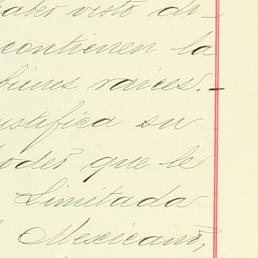 haber visto di-
contienen la
bienes raices.-
justifica su
poder que le
Limitada
Mexicano,